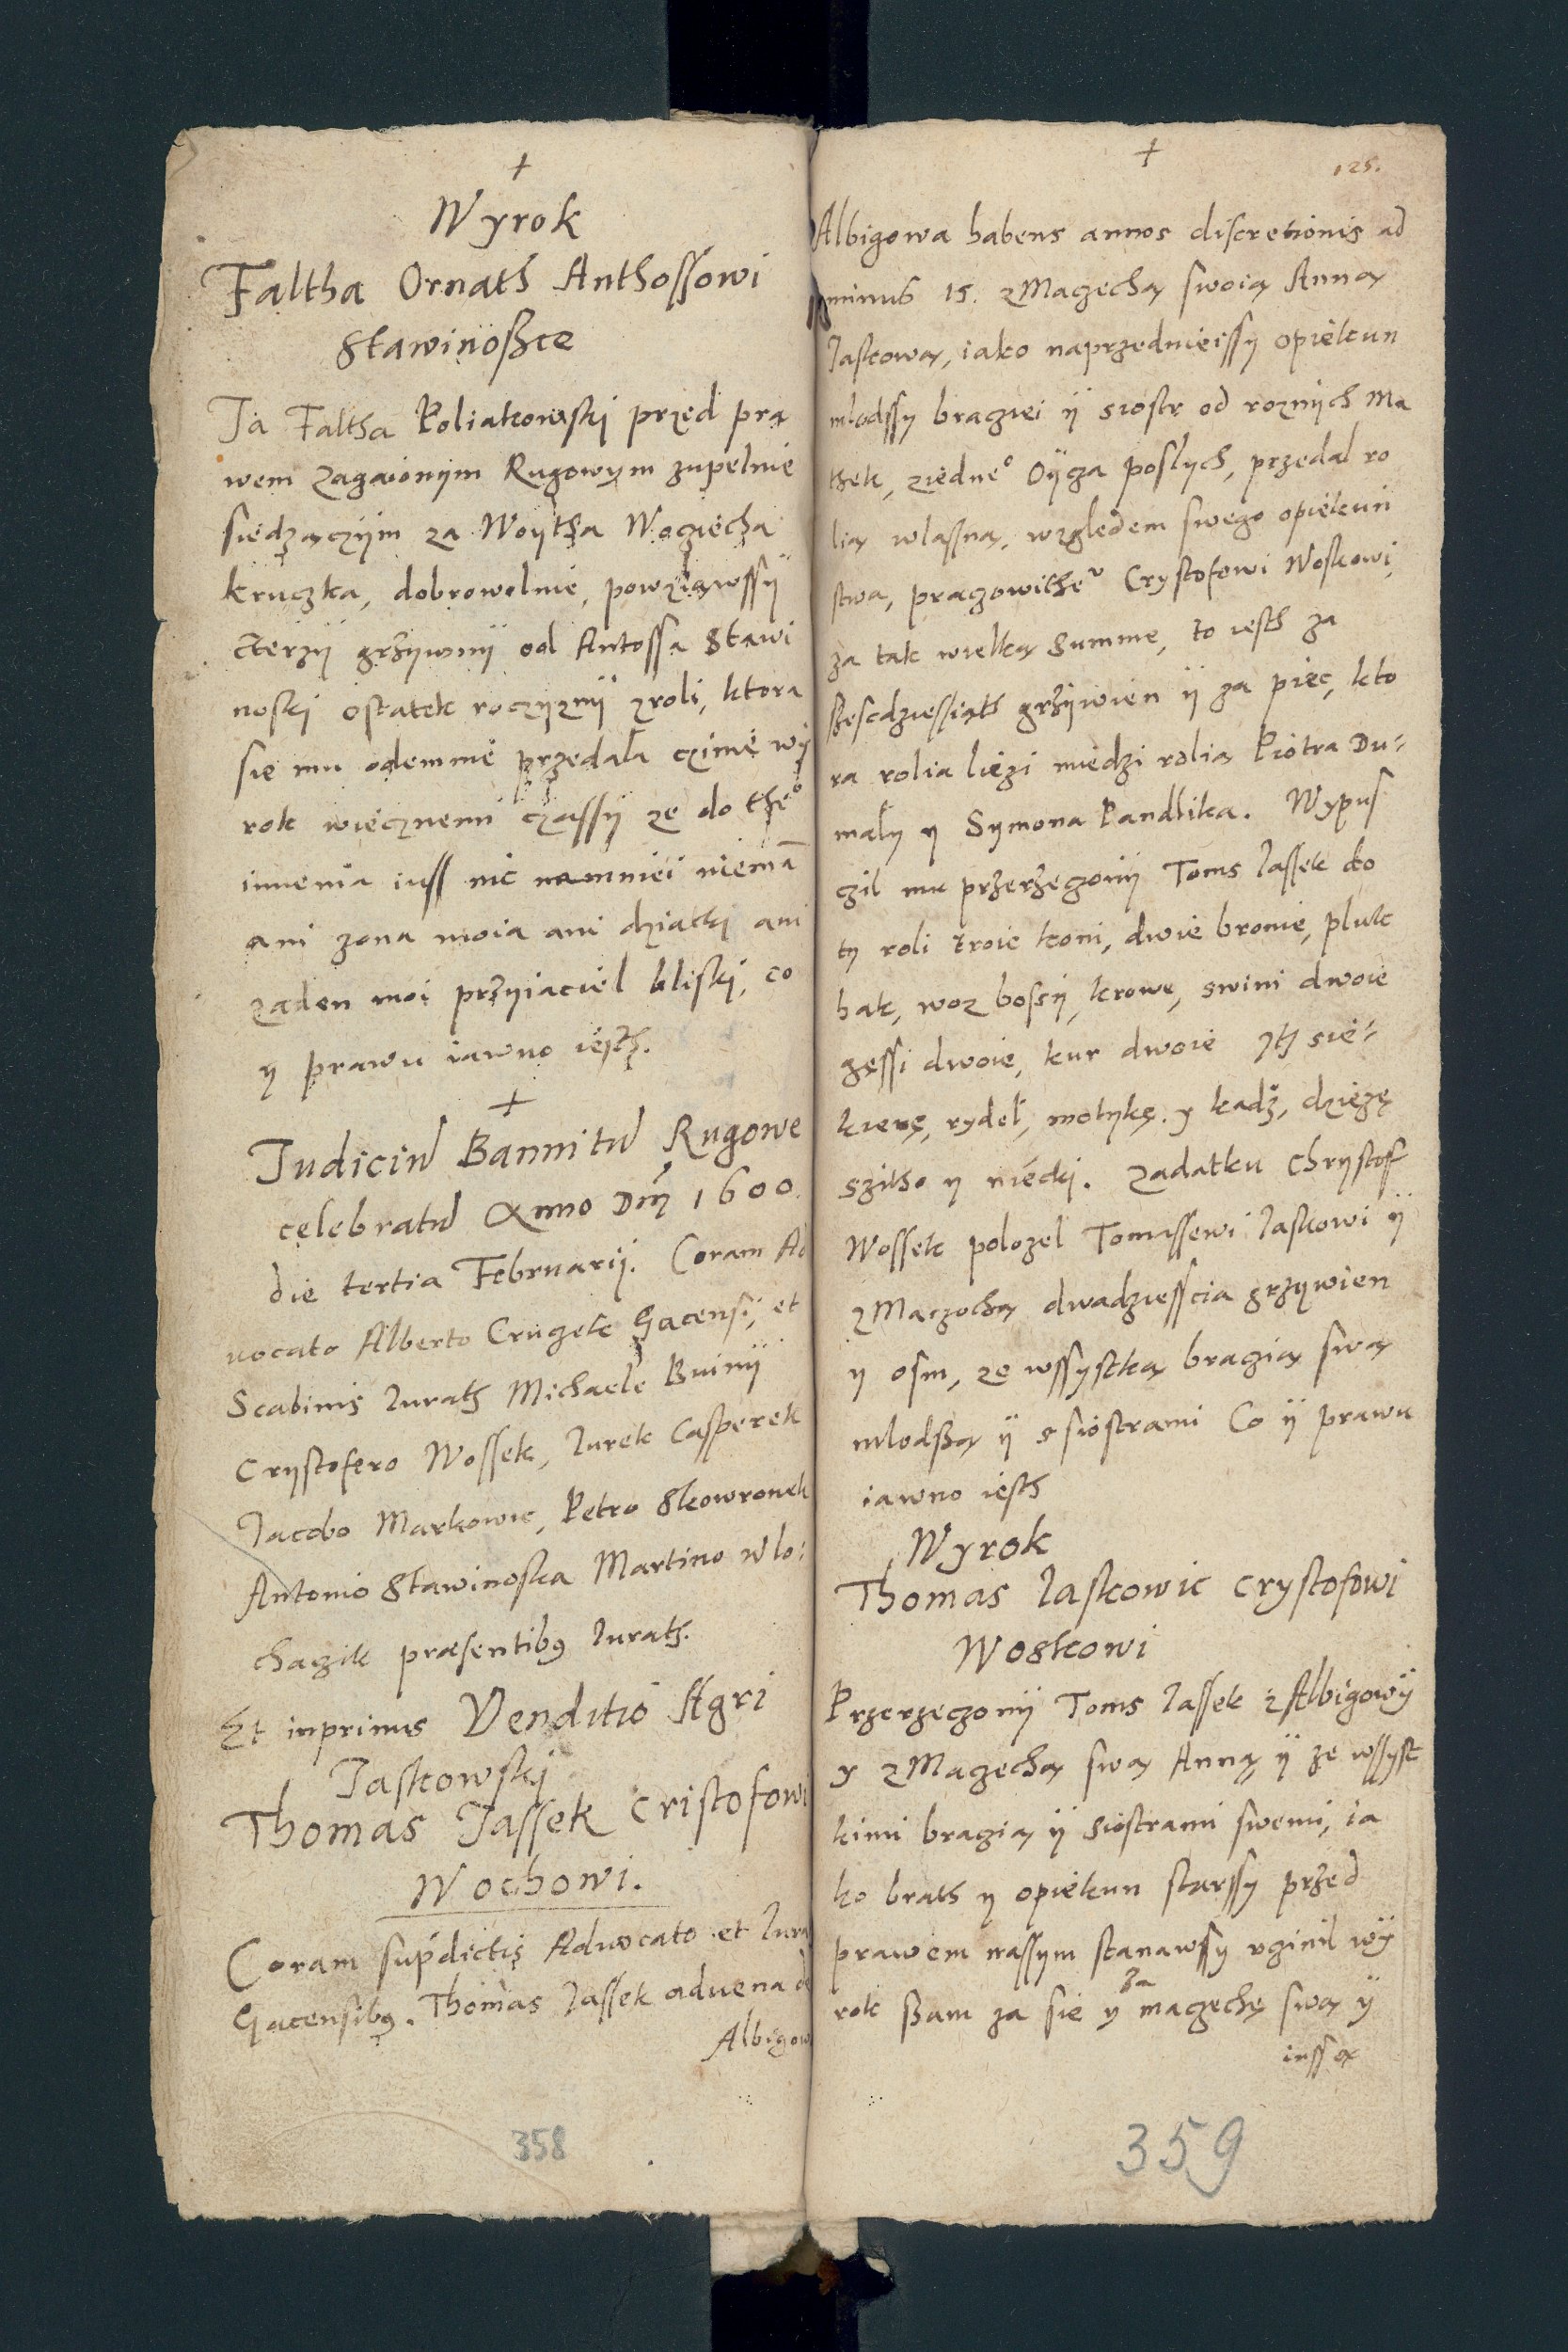 +
Wyrok
Faltha Ornath Anthossowi
Stawinoßce
Ja Faltha Poliakowskj przed pra
wem Zagaionÿm Rugowym zupelnie
siedzączÿm za Woytha Wocziecha
kruczka, dobrowolnie, powziąwssÿ
czterzÿ grzÿwnÿ od Antossa Stawi
noskj ostatek roczÿznÿ zroli, ktora
się mu odemnie przedała czinię wÿ
rok wiecznemi czassÿ ze do the°
imienia iuss nic namniei niemā
ani zona moia ani dziatkj ani
zaden moi przÿiaciel bliskj, co
y prawu iawno iesth.
+
Judiciū Bannitū Rugowe
celebratū Anno Dnj 1600.
die tertia Februarij. Coram Ad
uocato Alberto Cruczek Gacensi, et
Scabinis Iurath Michaele Buinÿ
Crÿstofero Wossek, Iurek Casperek
Jacobo Markowic, Petro Skowronek
Antonio Stawinoska Martino Wlo:
chaczik præsentibg Iurath.
Et inprimis Venditio Agri
Jaskowskj
Thomas Jassek Cristofowi
Wochowi.
Coram supdictis Aduocato et Iura
Gacensibg. Thomas Jassek aduena de
Albigow
358
+
125.
Albigowa habens annos discretionis ad
minus 15. z Maczechą swoią Anną
Jaskową, iako naprzednieissy opiekun
mlodssy braczei ÿ siostr od roznÿch Ma
thek, ziedne° Oÿcza poslych, przedal ro
lią wlasną, względem swego opiekun
stwa, praczowithe° Crystofowi Woskowi
za tak wielką Summę, to iesth za
sescdziesiąth grzÿwien ÿ za pięc, kto
ra rolia liezi miedzi rolią Piotra Du-
mały y Symona Pandlika. Wypus
czil mu przerzeczonÿ Toms Jassek do
tÿ roli troie koni, dwie bronie, pluk
hak, woz bossÿ, krowę, swini dwoie
gęssi dwoie, kur dwoie Jtj sie-
kierę, rydeł, motykę. y kadz, dzieżę
szitho y niéckj. Zadatku Chrÿstof
Wossek polozel Tomassewi Jaskowi ÿ
z Maczochą dwadziesscia grzywien
y osm, ze wssystką braczią swą
mlodßą ÿ s siostrami Co ÿ prawu
iawno iesth
Wyrok
Thomas Jaskowic Crystofowi
Woskowi
Przerzeczonÿ Toms Jassek z Albigowÿ
y z Maczechą swą Anną ÿ ze wssyst
kimi braczią ÿ siostrami swemi, ia
ko brath y opiekun starssy przed
prawem nassym stanawsy vczinil wÿ
rok ßam za sie y za maczechę swą ÿ
iusse
359